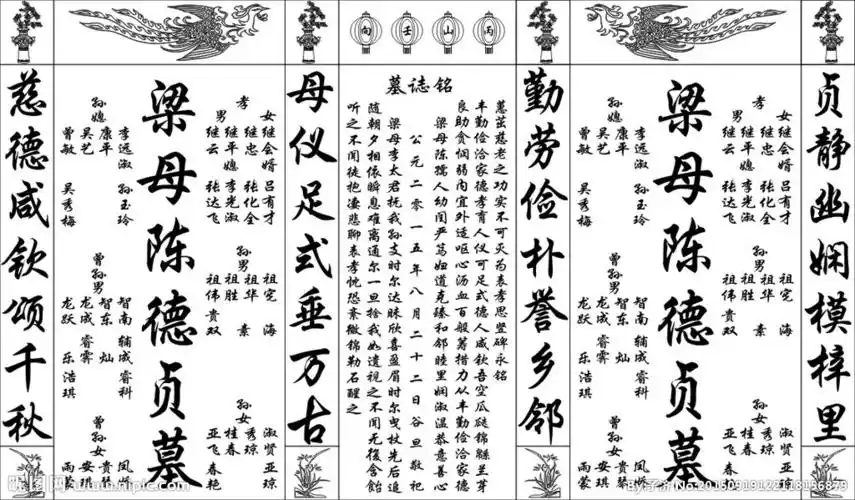 丙山壬向
贞静幽娴模梓里
女继会婿 吕有才
孝 继忠 张化全
男 继平媳 李光淑
继云 张达飞
祖宪 海
孙男 祖华 素
祖胜
祖伟 贵双
淑贤 亚琼
孙女 秀琼
桂春 春艳
亚飞
梁母陈德贞墓
孙媳 李远淑 孙玉玲
康平
吴艺
曾敏 吴秀梅
曾孙男 智南 辅成 睿科
智东 灿
龙成 睿霖
龙跃 乐浩琪
曾孙女
雨蒙
勤劳俭朴誉乡邻
墓誌铭
蕙茁慈老之功实不可灭为表孝思竖碑永铭
丰勤俭洽家德孝育人仪可足式德人咸钦吾空瓜瓞锦緜兰芽
良助贪悯弱内宜外适呕心沥血百般筹措力从丰勤俭洽家德
梁母陈孺人幼闺严笃妞道克臻和邻睦里娴淑温恭意善心
公元二零一五年八月二十二日谷旦敬祀
梁母李太君抚我孙支时尔达昧欣喜盈眉时尔曳杖先后追
随朝夕相依瞬息难离通尔一旦捨我如遗视之不闻无復含饴
听之不闻徒抱凄悲聊表孝忱恐紊微锦勒石醒之
母仪足式垂万古
女继会婿 吕有才
孝 继忠 张化全
男 继平媳 李光淑
继云 张达飞
祖宪 海
孙男 祖华 素
祖胜
祖伟 贵双
淑贤 亚琼
孙女 秀琼
桂春 春艳
亚飞
梁母陈德贞墓
孙媳 李远淑 孙玉玲
康平
吴艺
曾敏 吴秀梅
曾孙男 智南 辅成 睿科
智东 灿
龙成 睿霖
龙跃 乐浩琪
曾孙女
雨蒙
慈德咸钦颂千秋